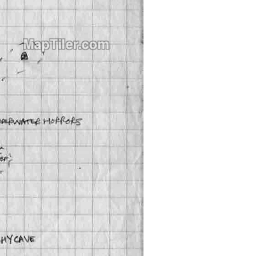 MapTiler.com
DERWATER HORRORS
HY CAVE